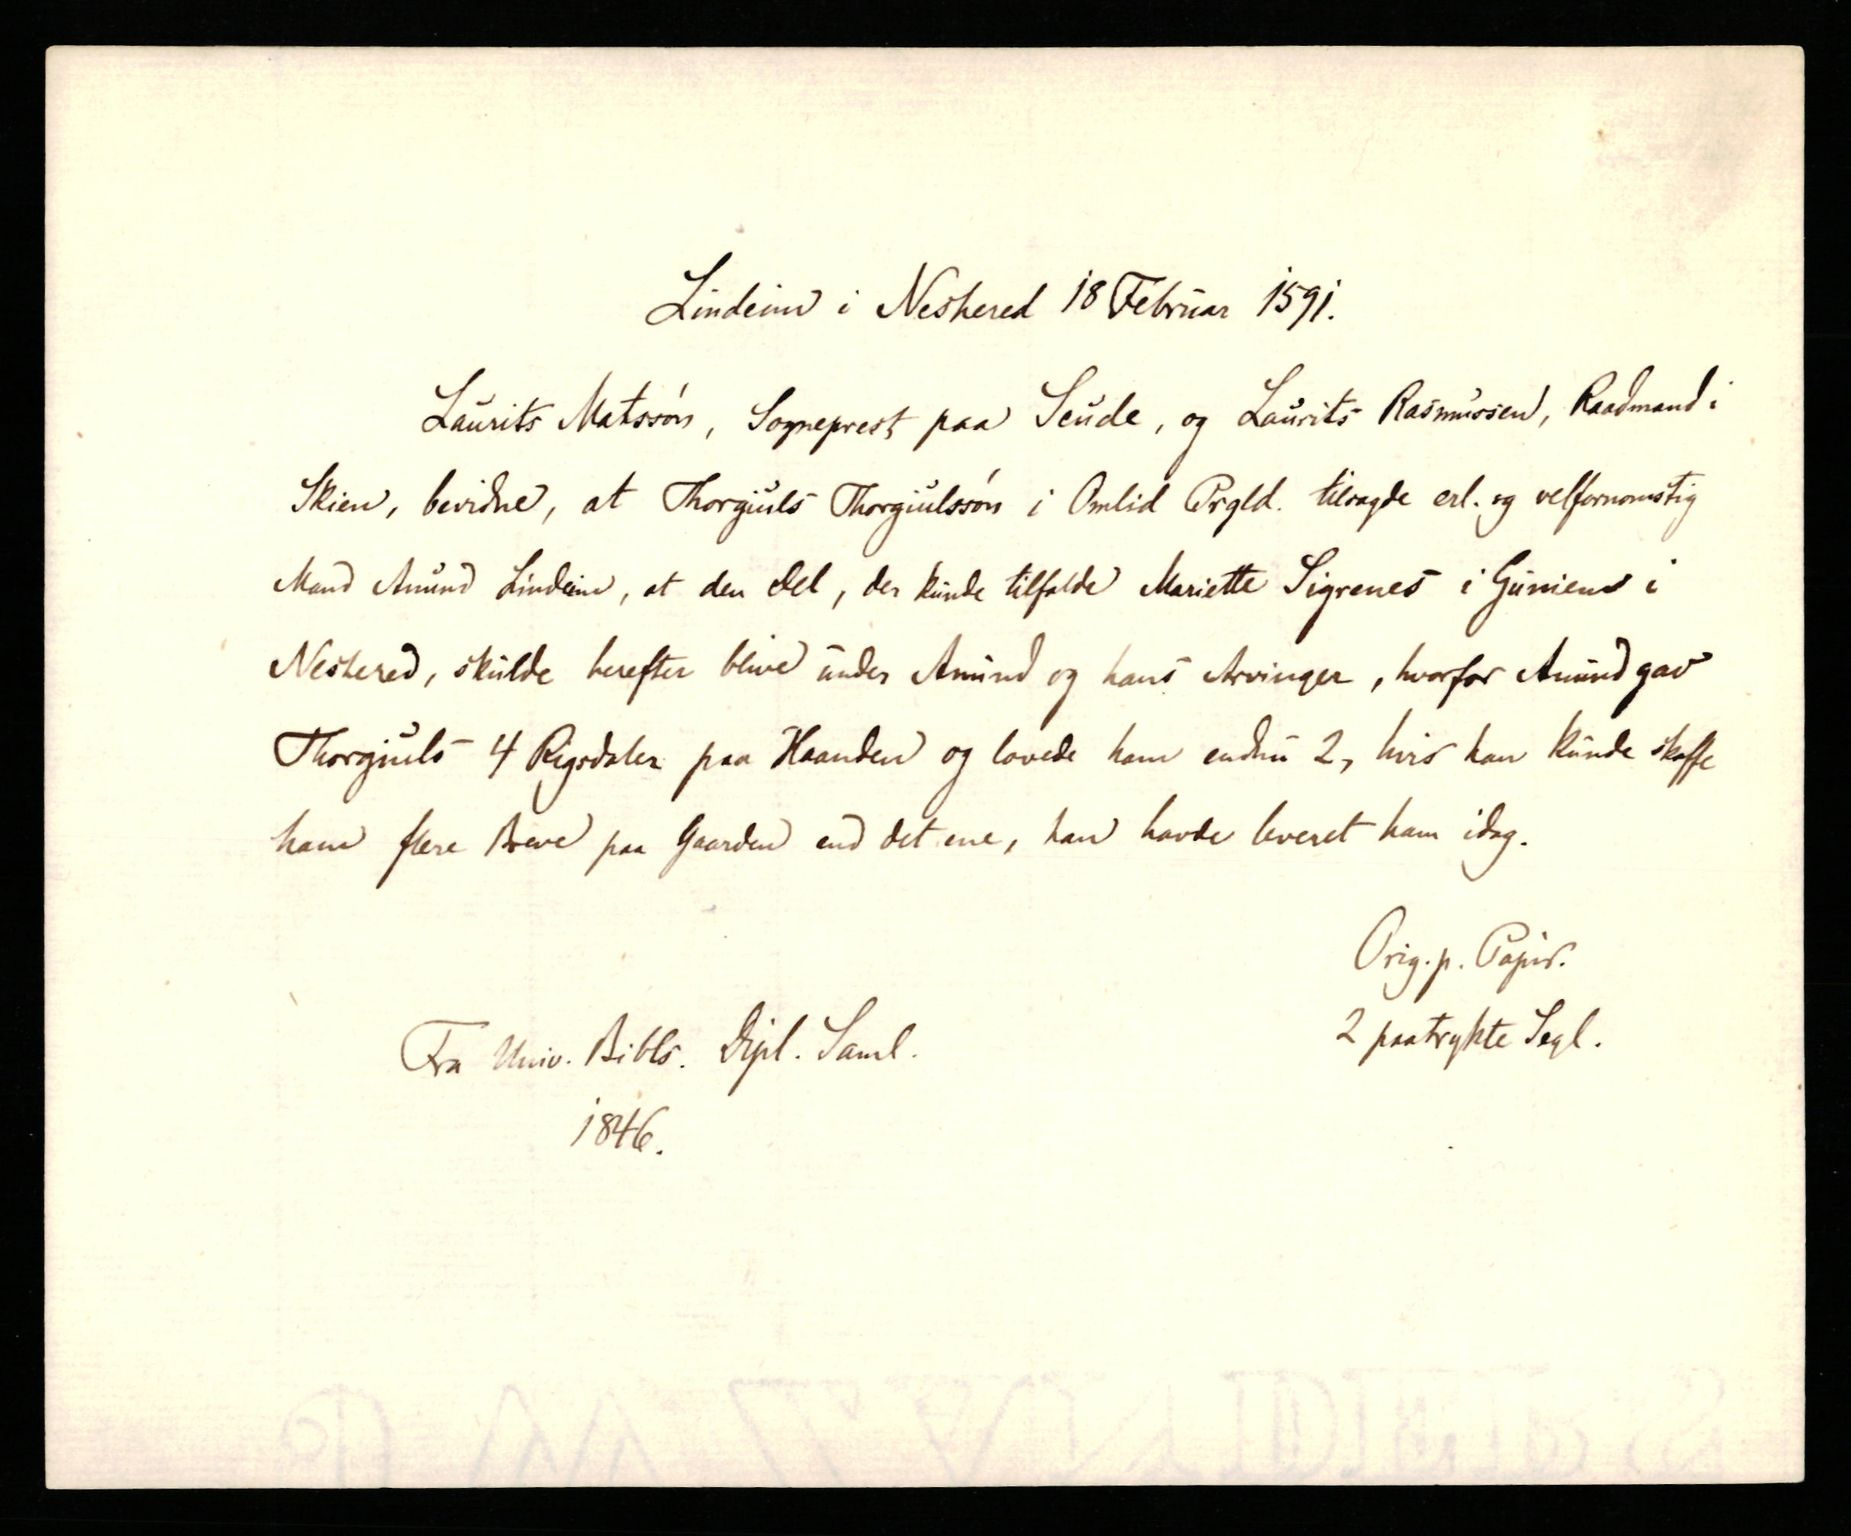 Lindeim i Neshered 18 Februar 1591.
Laurits Matssøn, Sogneprest paa Seude, og Laurits Rasmussen, Raadmand i
Skien, bevidne, at Thorgiuls Thorgiulssøn i Omlid Prgld. tilsagde erl. og velfornomstig
Mand Amund Lindeim, at den Del, der kunde tilfalde Mariette Sigrenes i Guniem i
Neshered, skulde herefter blive under Amund og hans Arvinger, hvorfor Amund gav
Thorgiuls 4 Rigsdaler paa Haanden og lovede ham endnu 2, hvis han kunde skaffe
ham flere Breve paa Gaarden end det ene, han havde leveret ham idag.
Orig. p. Papir.
2 paatrykte Segl.
Fra Univ. Bibls. Dipl. Saml.
1846.